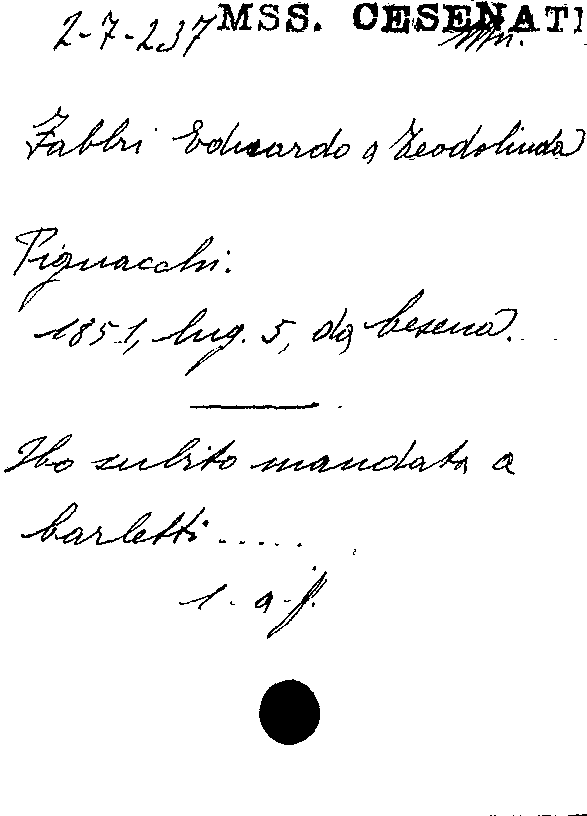 2-7-237 MSS. CESENATI
Fabbri Eduardo a Teodolinda
Pignacchi.
1851, lug. 5, da Cesena.
Ho subito mandata a
Carletti.....
1. a f.